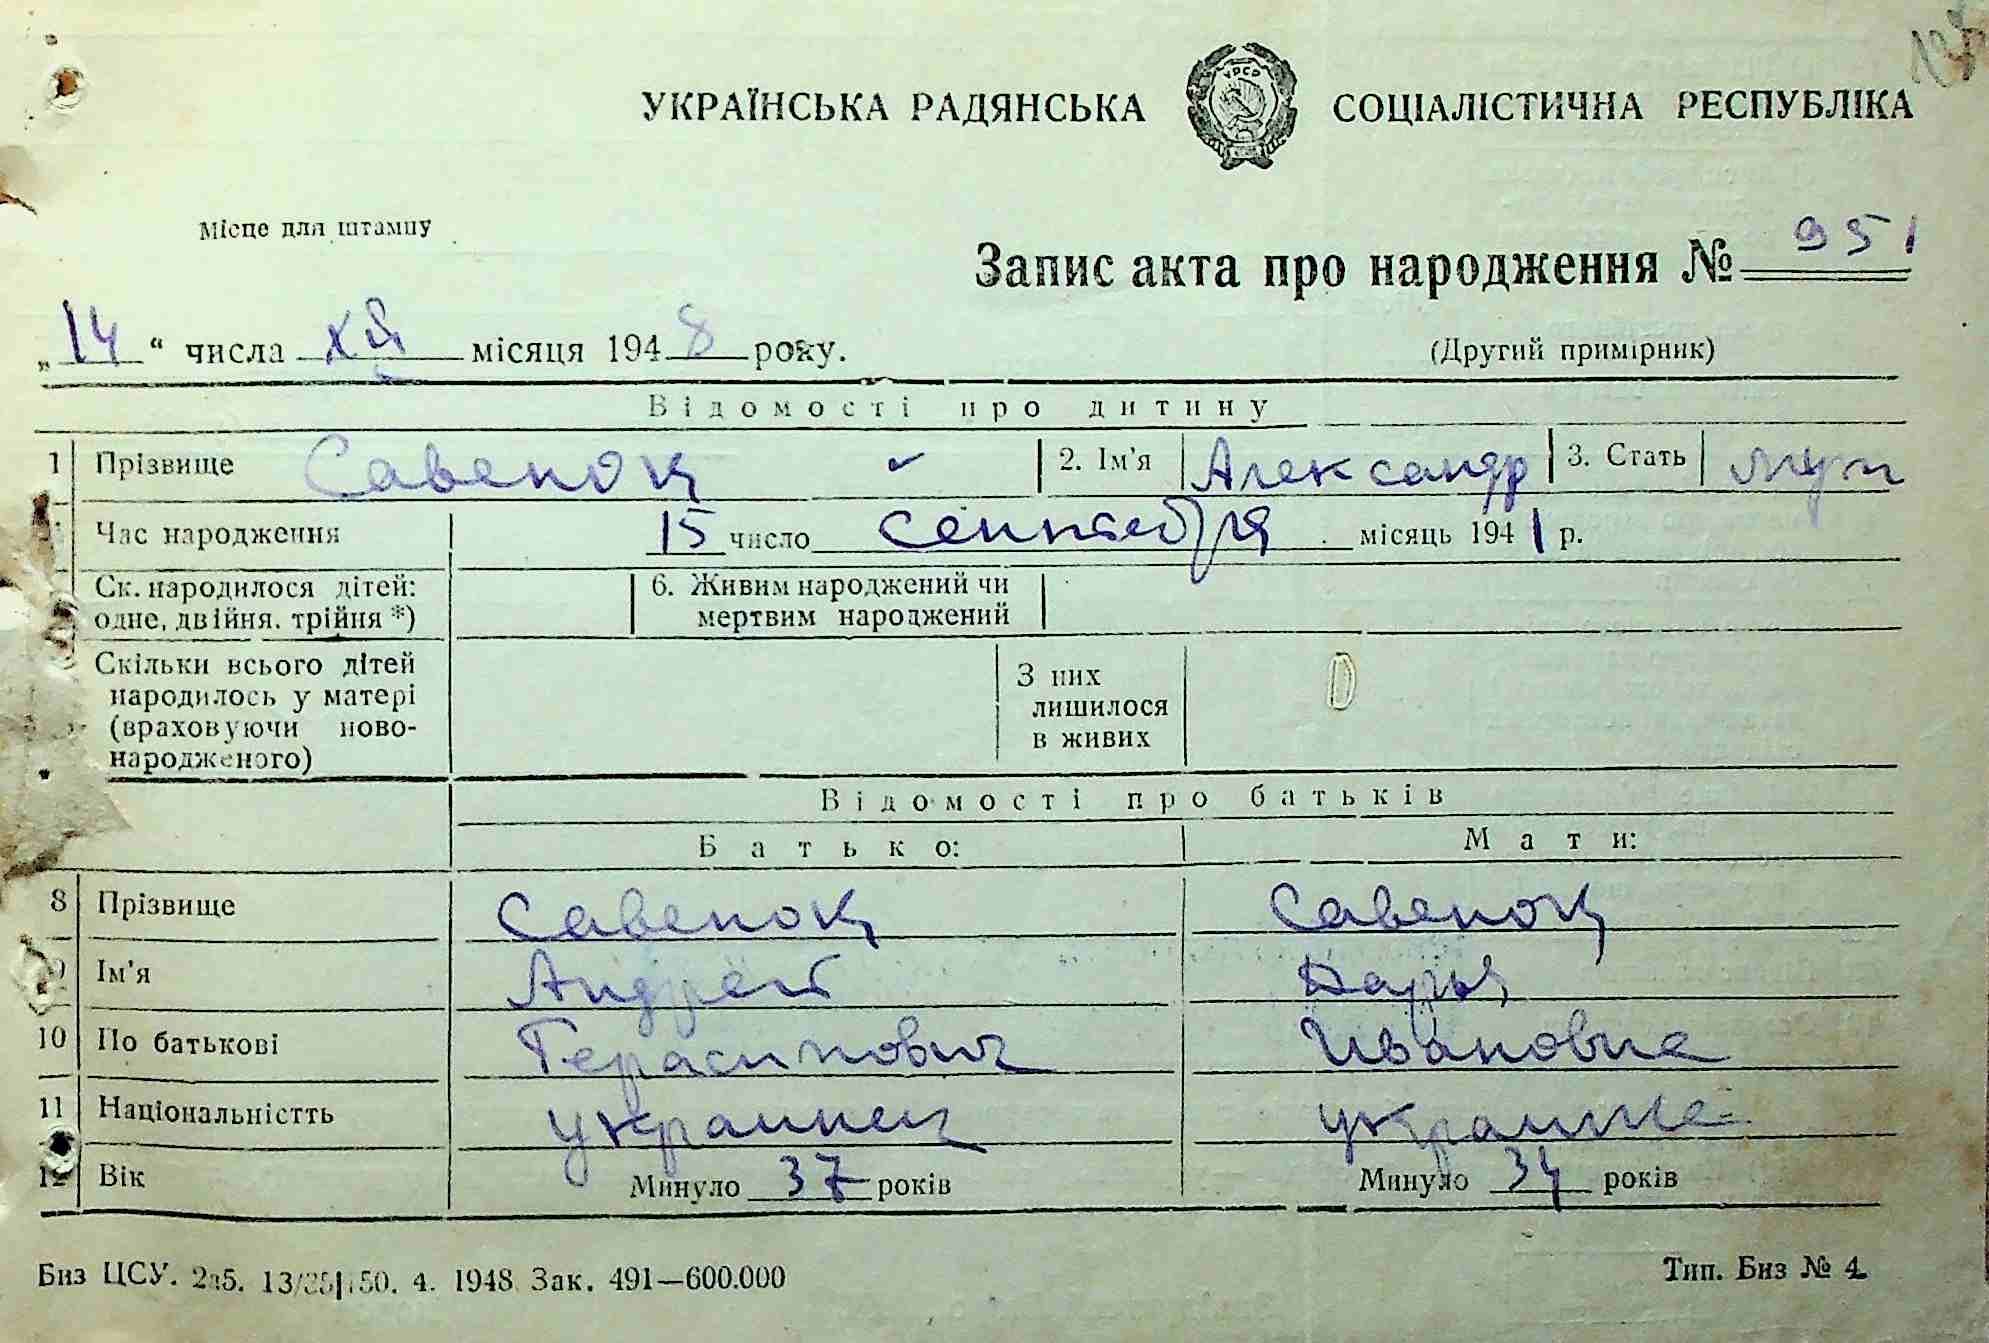 УКРАЇНСЬКА РАДЯНСЬКА СОЦІАЛІСТИЧНА РЕСПУБЛІКА
УРСР
Місце для штампу
Запис акта про народження № 951
„14“ числа XII місяця 1948 року.
(Другий примірник)
Відомості про дитину
1 Прізвище Савенок 2. Ім'я Александр 3. Стать муж
Час народження 15 число сентября місяць 1941 р.
Ск. народилося дітей: одне, двійня, трійня *) 6. Живим народжений чи мертвим народжений
Скільки всього дітей народилось у матері (враховуючи ново-народженого) З них лишилося в живих
Відомості про батьків
Батько: Мати:
8 Прізвище Савенок Савенок
9 Ім'я Андрей Дарья
10 По батькові Герасимович Ивановна
11 Національністть украинец украинка
12 Вік Минуло 37 років Минуло 34 років
Биз ЦСУ. 50. 4. 1948 Зак. 491—600.000
Тип. Биз № 4